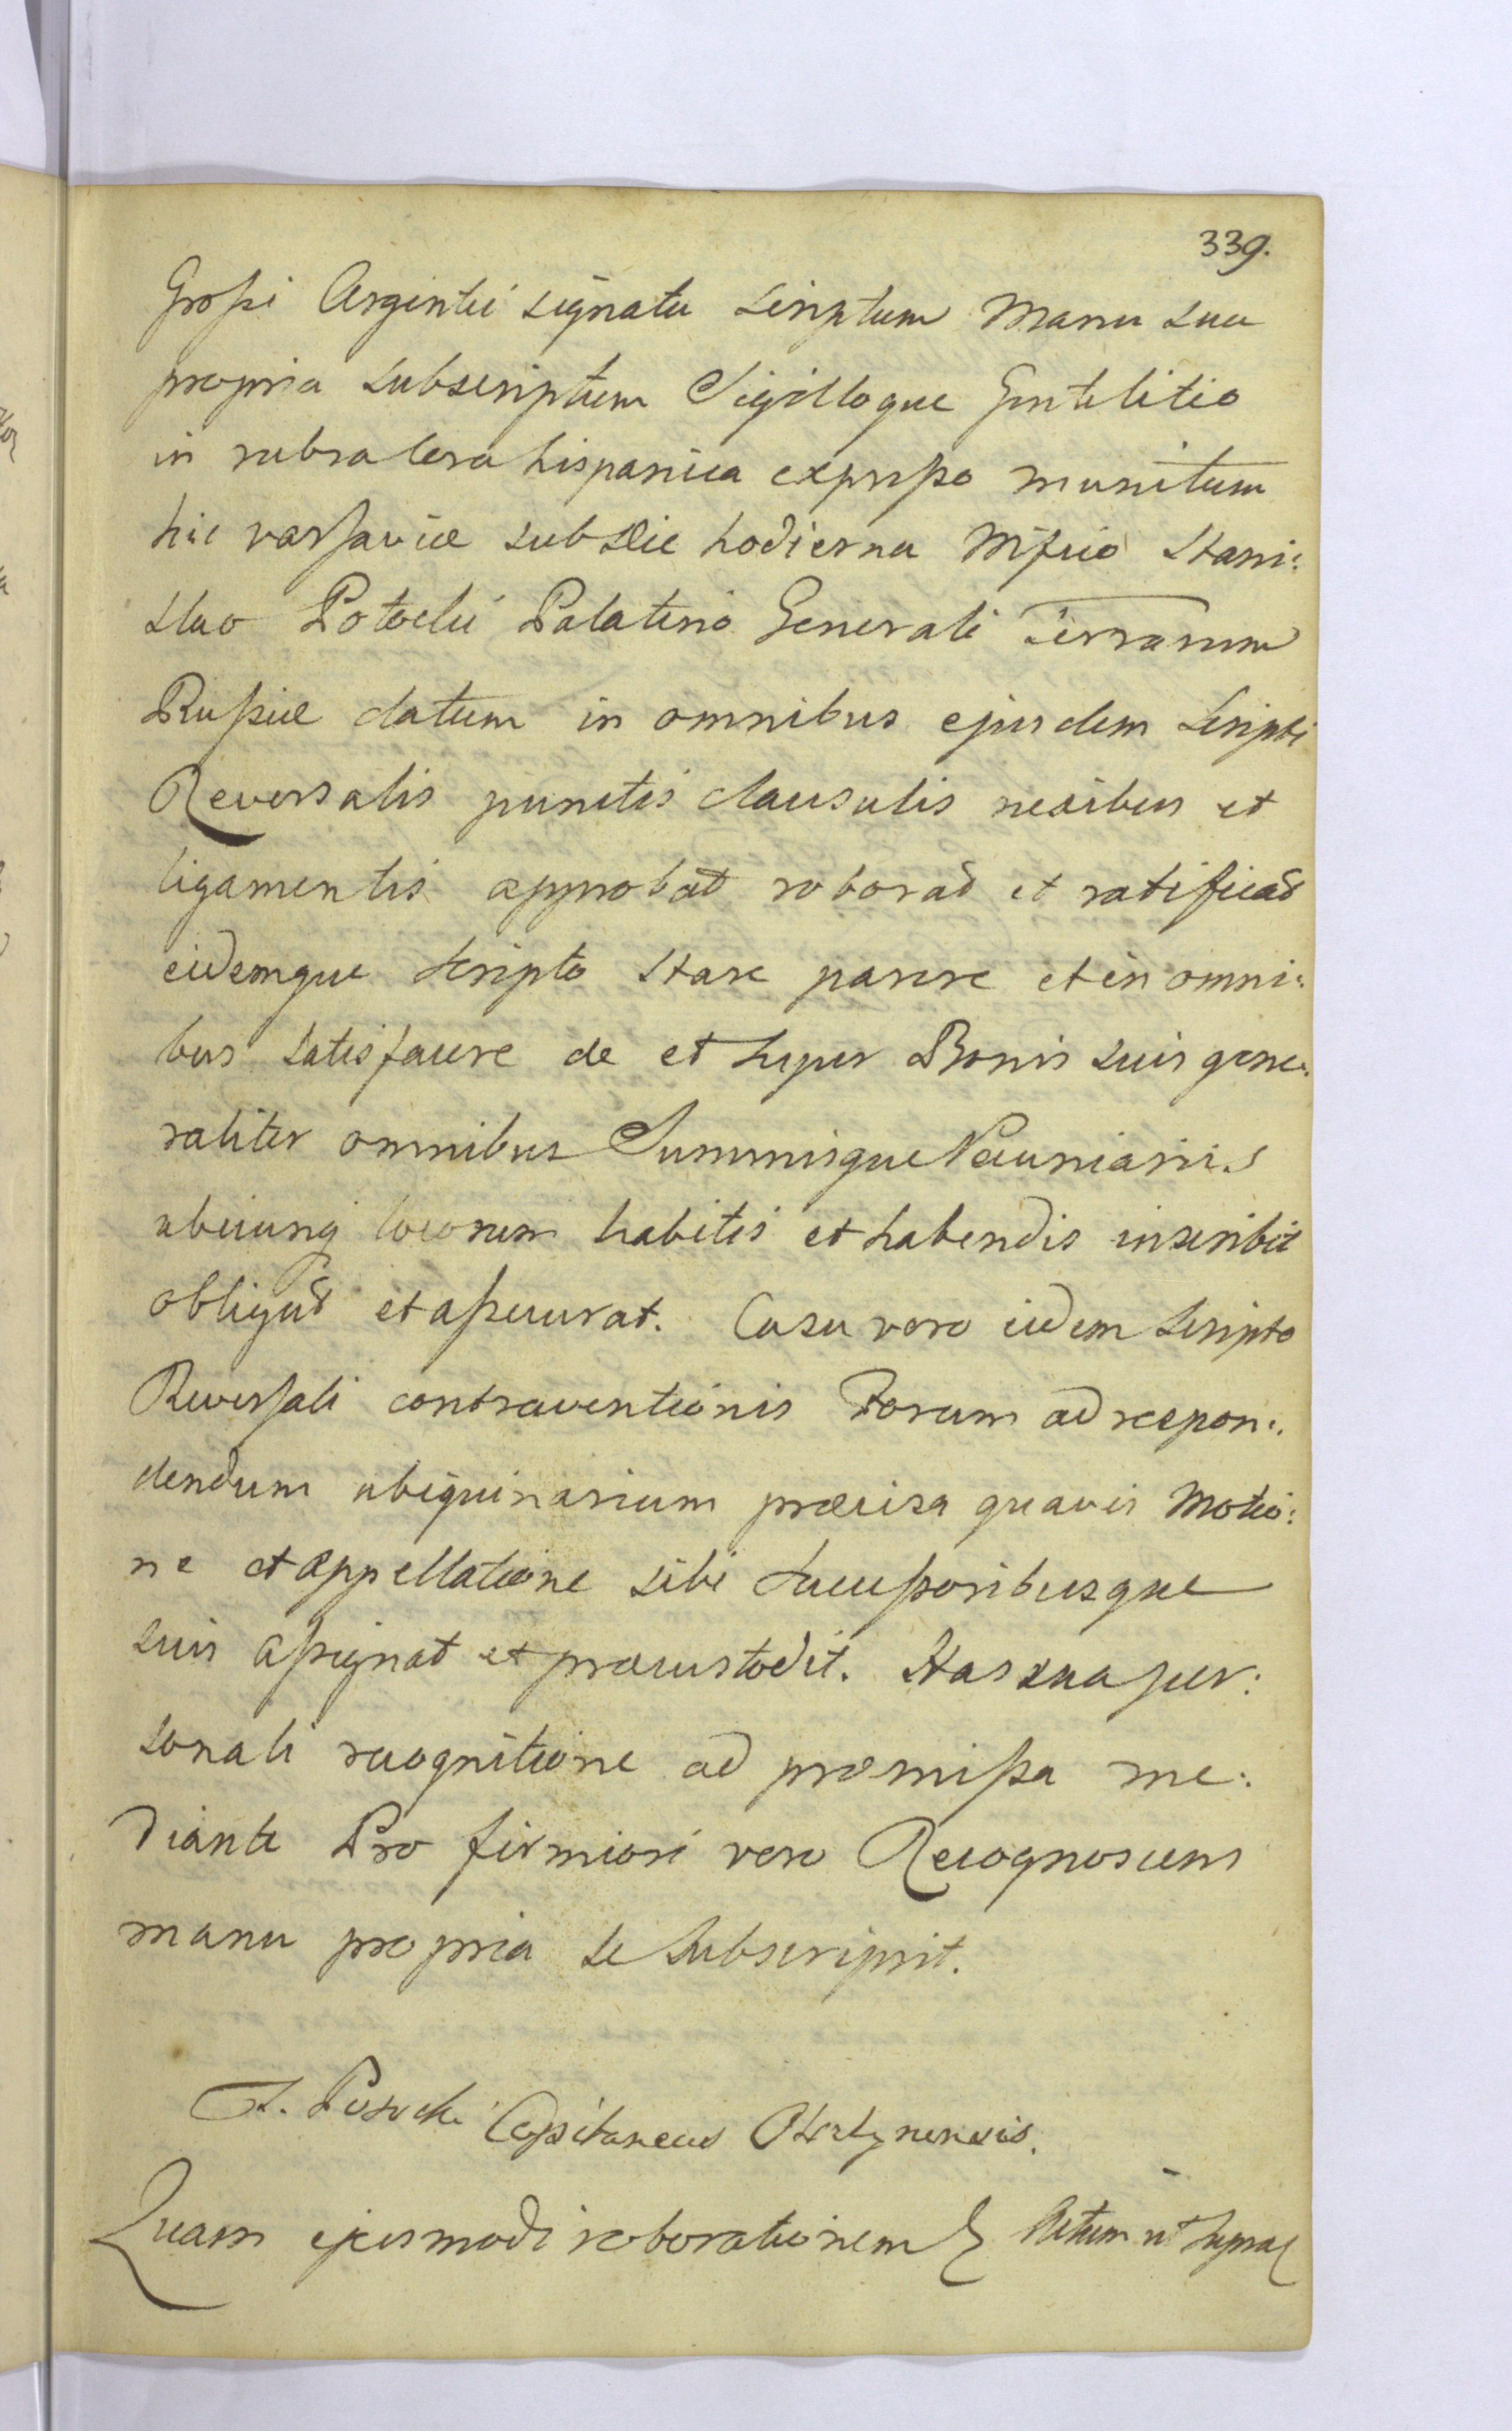 339.
Grossi Argentei signatu scriptum Manu sua
propria subscriptum Sigilloque Gentilitio
in rubra cera hispanica expresso munitum
hic Varsaviæ sub die hodierna Mfico Stani:
slao Potocki Palatino Generali Terrarum
Russiæ datum in omnibus ejusdem Scripti
Reversalis punctis clausulis nexibus et
ligamentis approbat roborat et ratificat
eidemque Scripto stare parere et in omni:
bus satisfacere de et super Bonis suis gene:
raliter omnibus Summisque Pecuniariis
ubicunq locorum habitis et habendis inscribit
obligat et assecurat. Casu vero eidem Scripto
Reversali contraventionis Forum ad respon:
dendum ubiquinarium præcisa quavis Motio:
ne et appellatione sibi Successoribusque
suis assignat et præcustodit. Stas sua per:
sonali recognitione ad præmissa me:
diante Pro firmiori vero Recognoscens
manu propria se subscripsit.
Capitaneus Obertynensis.
Quam ejusmodi roborationem Actum ut supra